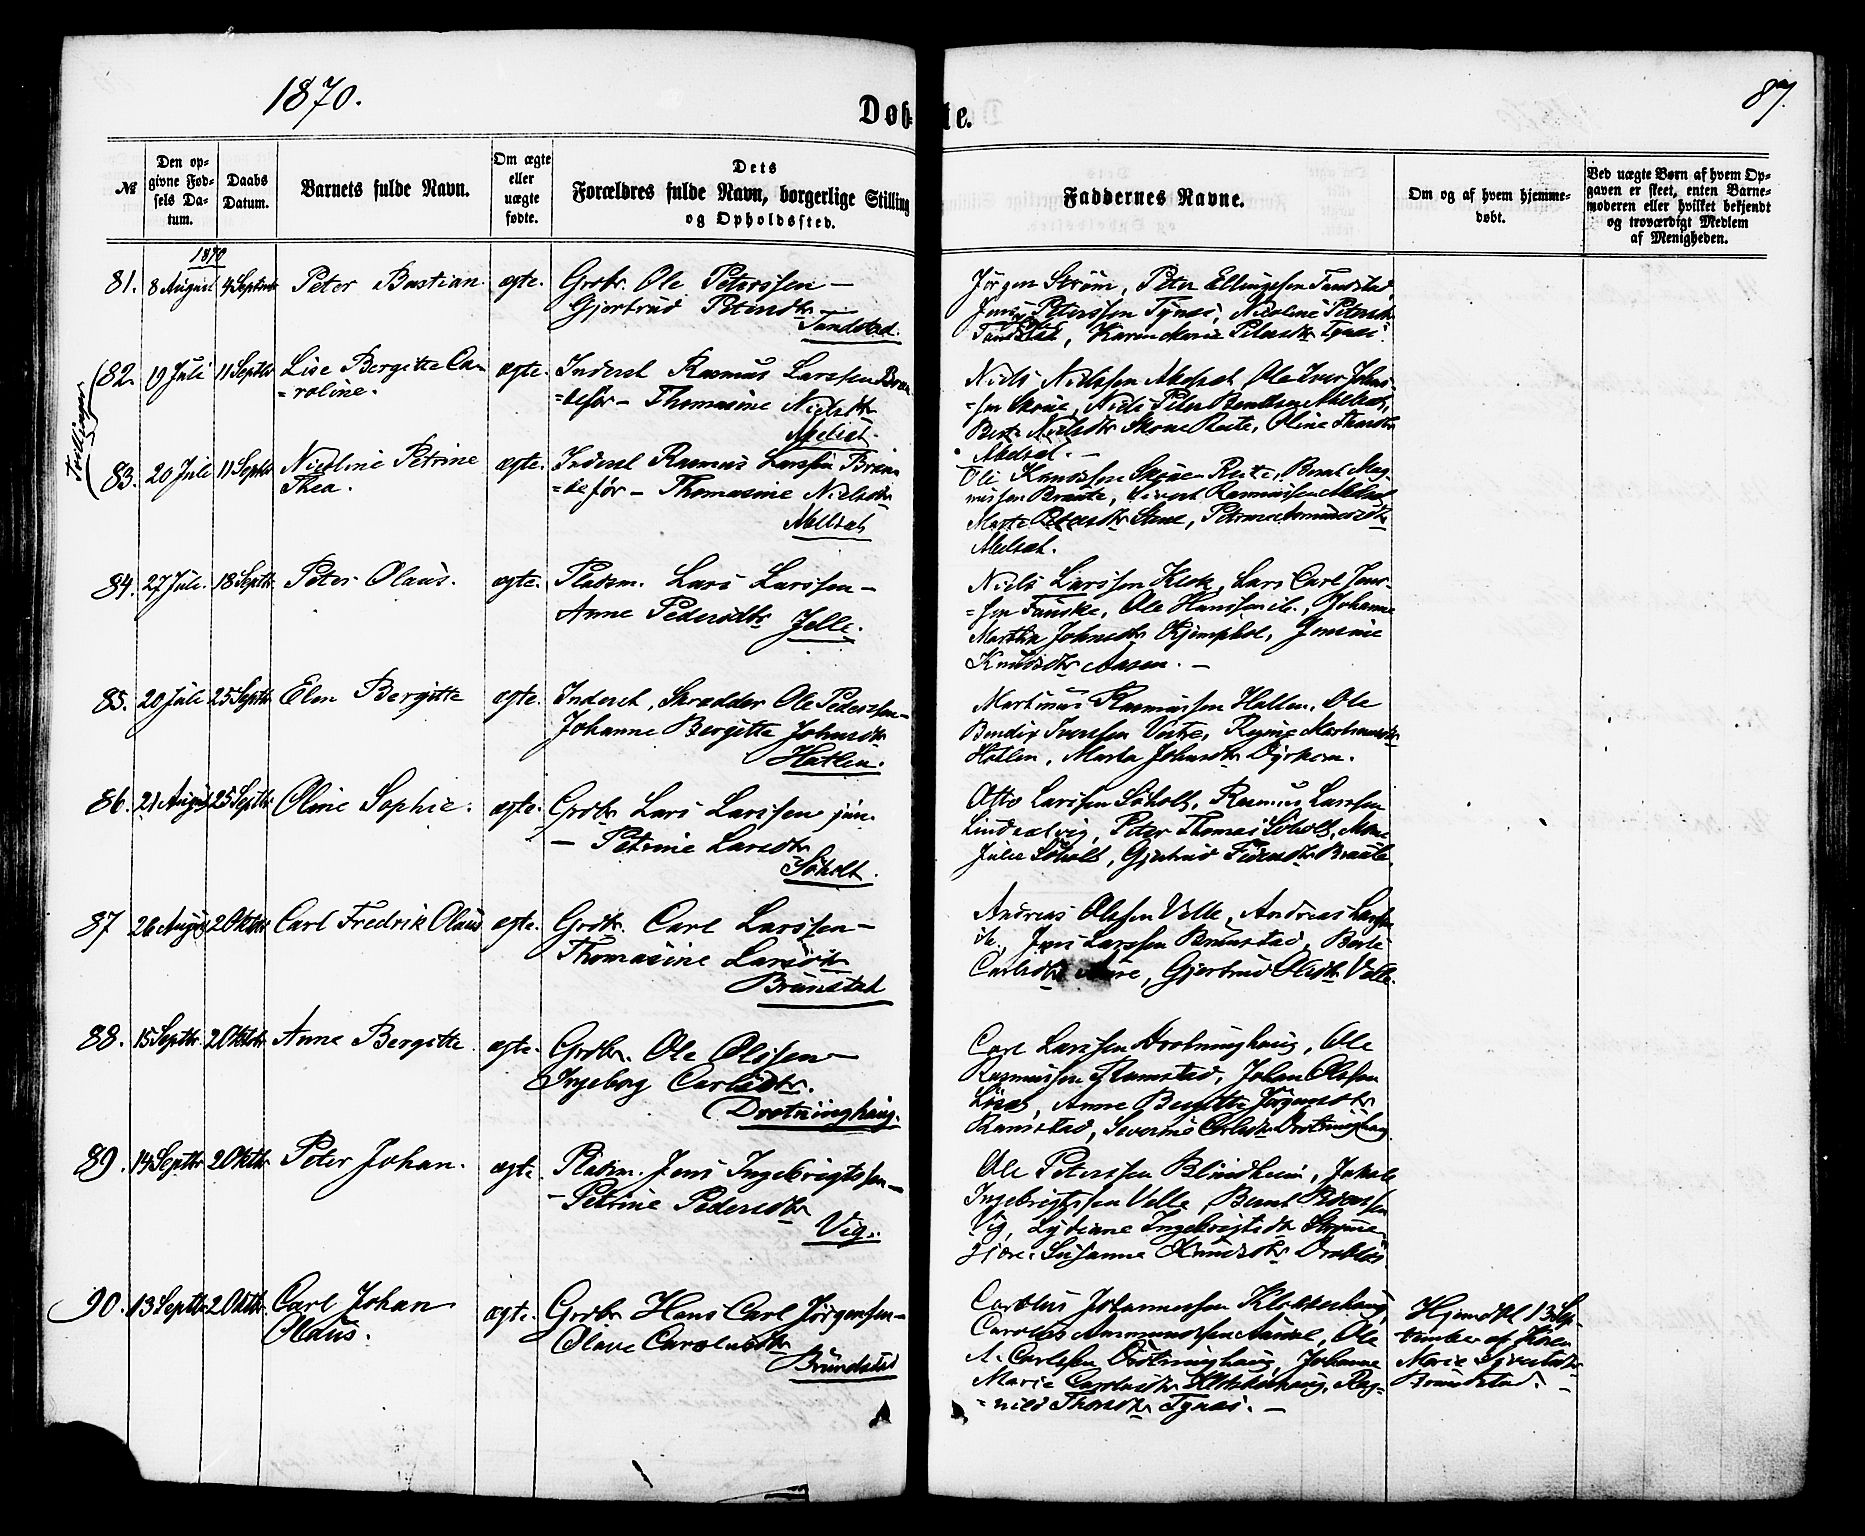 1870.
87.
Døbte.
№
Den op-
givne Fød-
sels Da-
tum.
Daabs
Datum.
Barnets fulde Navn.
Om ægte
eller
uægte
fødte.
Dets
Forældres fulde Navn, borgerlige Stilling
og Opholdssted.
Faddernes Navne.
Om og af hvem hjemme-
døbt.
Ved uægte Børn af hvem Op-
gaven er skeet, enten Barne-
moderen eller hvilket bekjendt
og troværdigt Medlem
af Menigheden.
1870
81. 8 August 4 Septbr Peter Bastian. ægte. Grdbr. Ole Peterssen –
Gjertrud Petersdtr
Tandstad.
Jørgen Strøm, Peter Ellingssen Tandstad,
Jens Peterssen Tynæs, Nicoline Petersdtr
Tandstad, Karen Marie Petersdtr Tynæs.
Tvillinger
82. 19 Juli 11 Septbr Lise Bergitte Ca-
=roline. ægte. Inderst Rasmus Larssen Bran
=defør – Thomasine Nielsdtr
Abelsæt.
Niels Nielssen Abelsæt, Ole Iver Johns-
=sen Skoue, Niels Peter Berntsen Abelsæt,
Nielsdtr Skoue Reite, Oline
Abelsæt. –
83. 20 Juli 11 Septbr Nicoline Petrine
Thea. ægte. Inderst Rasmus Larssen Bran
=defør – Thomasine Nielsdtr
Abelsæt
Ole Knudssen Skouen Reite, Bernt Mag-
nussen Braute, Sivert Rasmussen Abelsæt
Marte Petersdtr Stene, Petrine
Abelsæt.
84. 27 Juli. 18 Septbr Peter Olaus. ægte. Pladsm. Lars Larssen –
Anne Pedersdtr Jelle.
Niels Larssen Klok, Lars Carl Jens-
=sen Fauske, Ole Hanssen ib., Johanne
Martha Johnsdtr Kjemphol, Jensine
Knudsdtr Aasen. –
85. 20 Juli 25 Septbr Elen Bergitte ægte. Inderst, Skrædder Ole Pederssen –
Johanne Bergitte Johnsdtr
Hatlen.
Martinus Rasmussen Hatlen, Ole
Bendix Iverssen Vestre, Regine Martinusdtr
Hatlen, Marta Johnsdtr Dyrkorn.
86. 21 August 25 Septbr Oline Sophie. ægte. Grdbr Lars Larssen jun.
– Petrine Larsdtr
Søholt.
Otto Larssen Søholt, Rasmus Larssen
Peter Thomas Søholt,
Julie Søholt, Gjertrud Braute.
87 26 August 2 Oktbr Carl Fredrik Olaus ægte. Grdbr. Carl Larssen –
Thomasine Larsdtr
Brunstad
Andreas Olssen Velle, Andreas Larssen
ib., Jens Larssen Brunstad, Berte
Carlsdtr Aure, Gjertrud Olsdtr Velle.
88. 15 Septbr. 2 Oktbr Anne Bergitte ægte. Grdbr. Ole Olssen –
Ingeborg Carlsdtr.
Drotninghaug.
Carl Larssen Drotninghaug, Ole
Rasmussen Ramstad, Johan Olssen
Anne Bergitte Jørgensdtr
Ramstad, Severine Carlsdtr Drotninghaug
89. 14 Septbr 2 Oktbr. Peter Johan. ægte. Pladsm. Jens Ingebrigtssen –
– Petrine Pedersdtr
Vig.
Ole Peterssen Blindheim, Jakob
Ingebrigtssen Velle, Bernt
Vig, Lydiane Ingebrigtsdtr
Susanne Knudsdtr Drabløs
90. 13 Septbr 2 Oktbr. Carl Johan
Olaus. ægte. Grdbr Hans Carl Jørgenssen –
Olave Carolusdtr
Brundstad
Carolus Johannessen Klokkerhaug,
Carolus Ammundssen Aursæt, Ole
A. Carlssen Drotninghaug, Johanne
Marie Carolusdtr Klokkerhaug, Rag-
=nild Thorsdtr Tynæs. –
Hjemdøbt 13 Sep-
tember af Karen
Marie Sivertsdtr
Brundstad. –